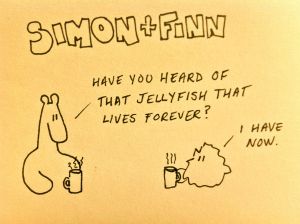 SIMON + FINN
HAVE YOU HEARD OF
THAT JELLYFISH THAT
LIVES FOREVER?
I HAVE
NOW.